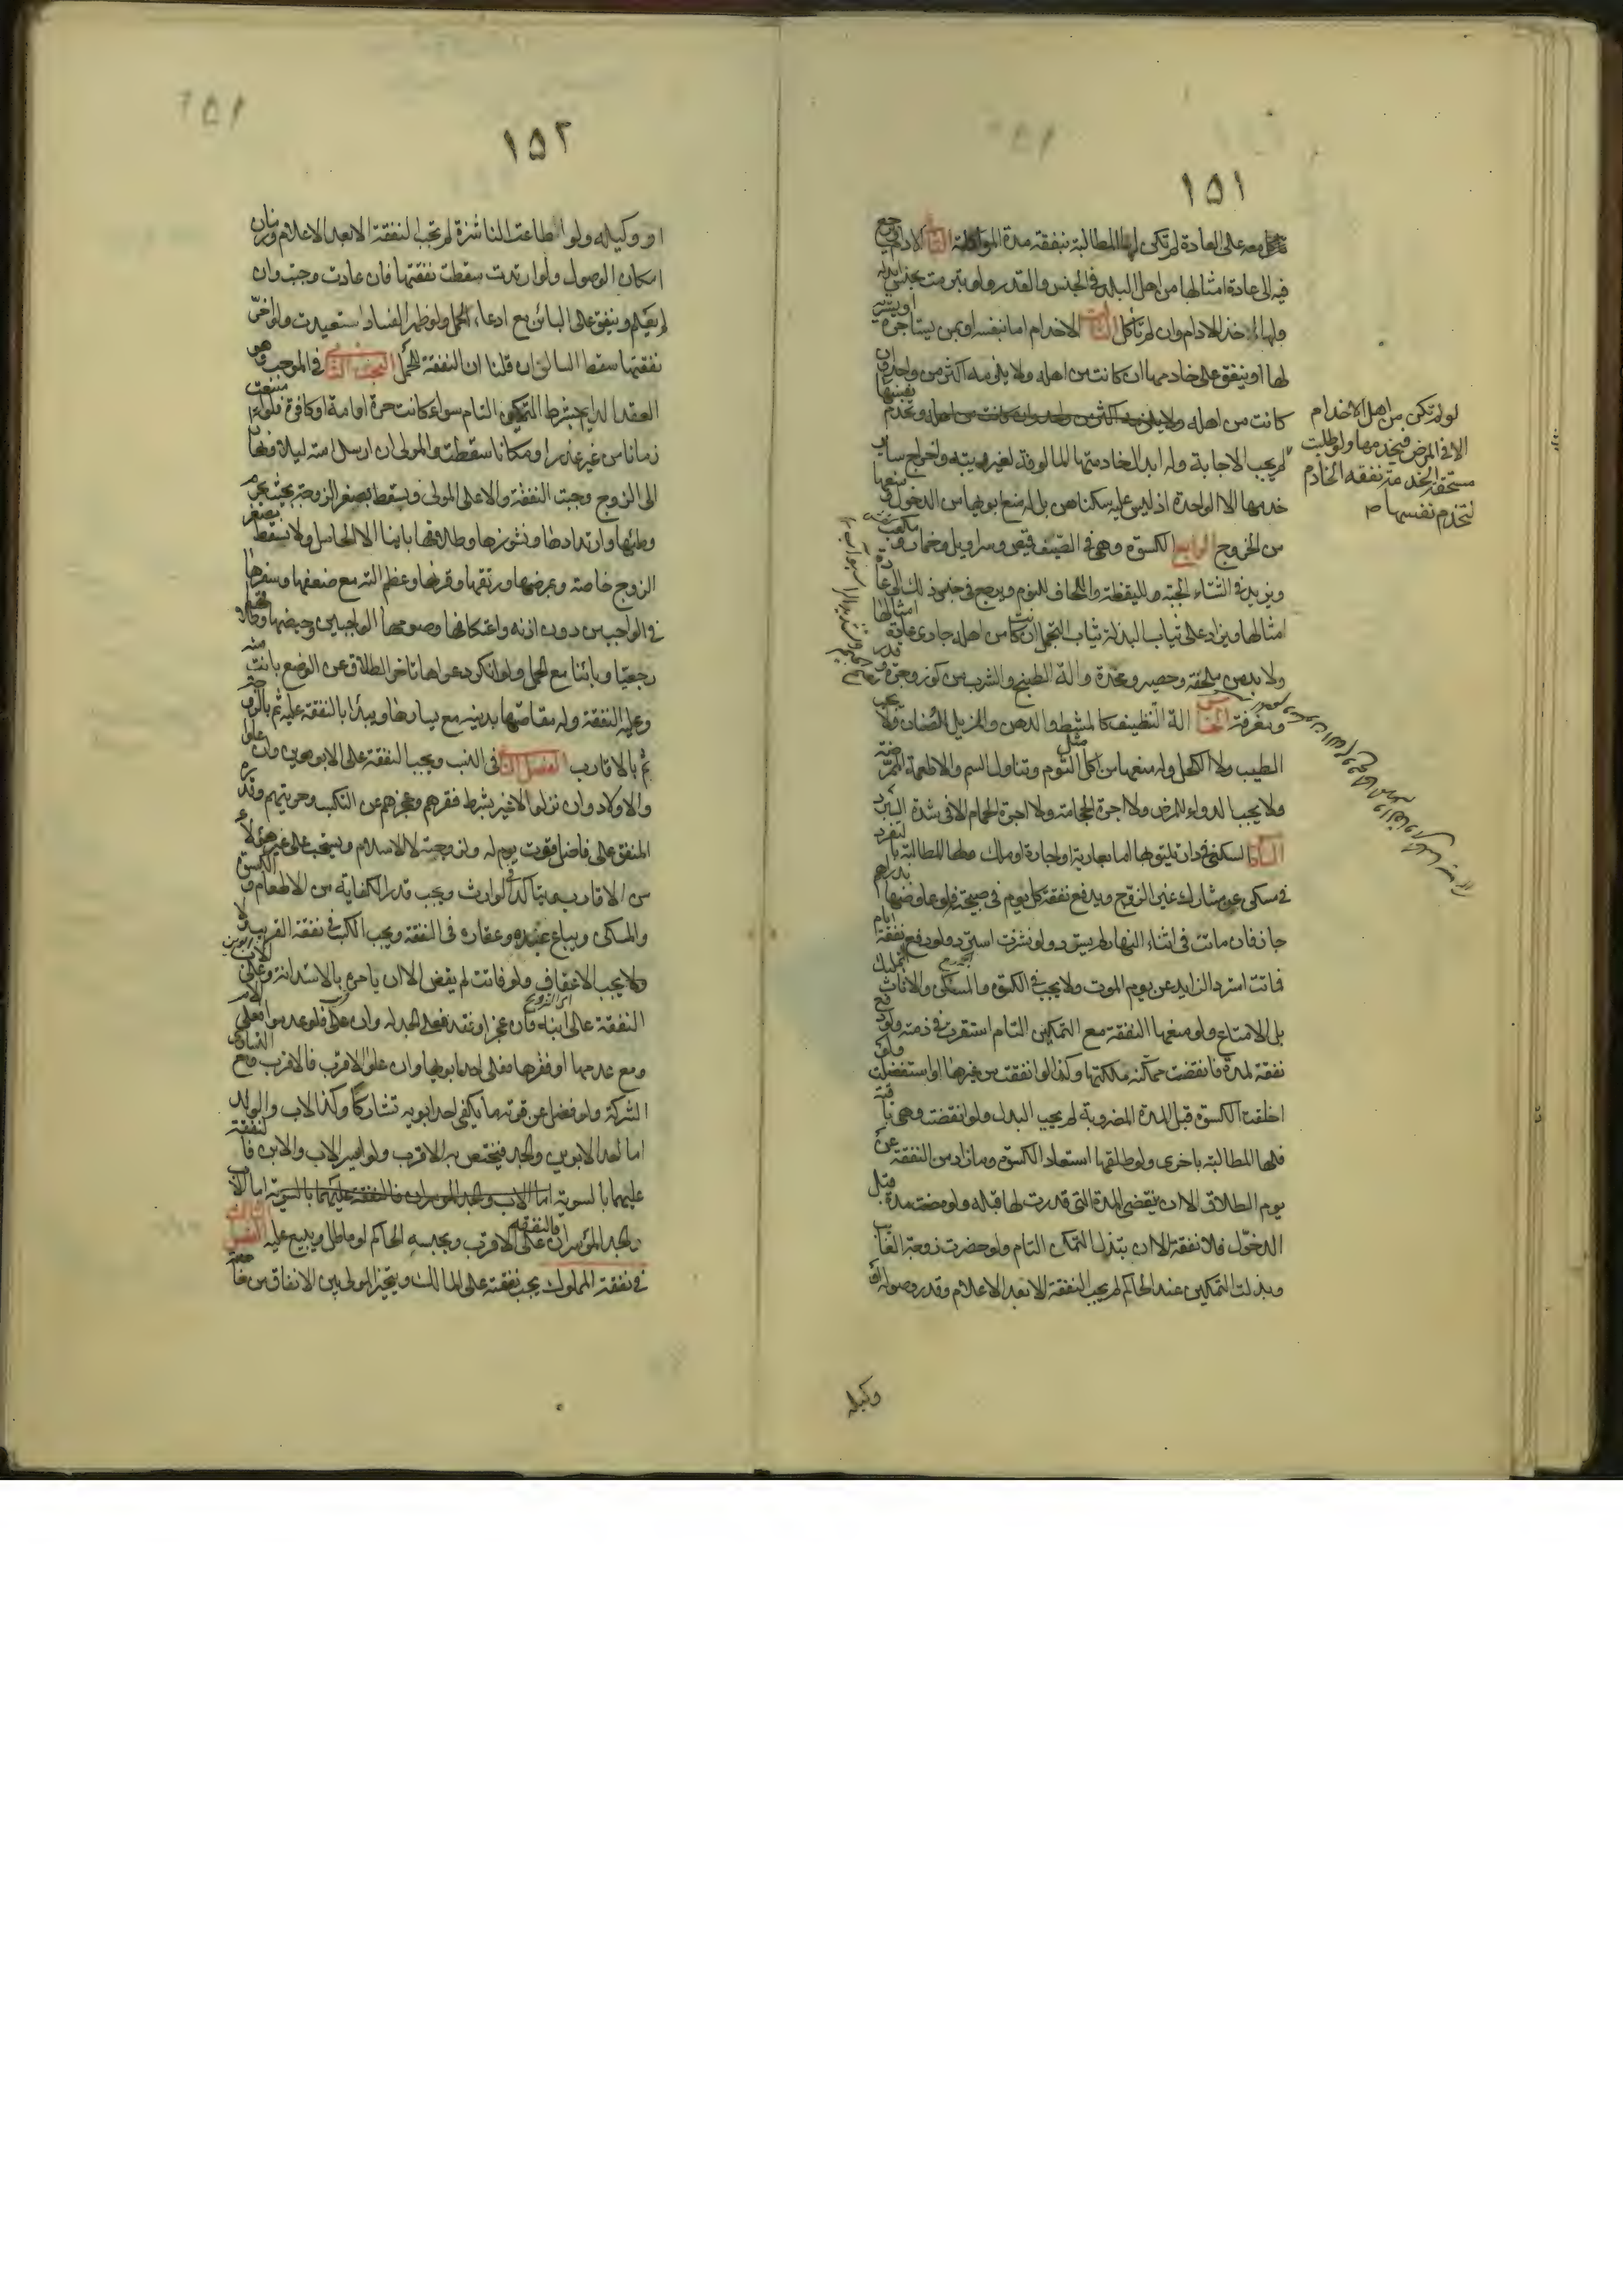 ١٥١
معه على العادة لم تكن لها المطالبة بنفقة مدة المواكلة الثاني الادم ويرجع
فيه الى عادة امثالها من اهل البلد في الجنس والقدر ولو تبرمت بجنس ابدله
ولها اخذ الادام وان لم تأكل الثالث الاخدام اما بنفسه او بمن يستاجره او يشتريه
لها او ينفق على خادمها ان كانت من اهله ولا يلزمه اكثر من واحد وان
كانت من اهله ولا يلزمه اكثر من واحد وان كانت من اهله وتخدم نفسها
لو لم تكن من اهل الاخدام
الا في المرض فيخدمها ولو طلبت
مستحقة الخدمة نفقة الخادم
لتخدم نفسها
لم يجب الاجابة وله ابدال خادمتها المالوفة لغير ريبة واخراج ساير
خدمها الا الواحدة اذ ليس عليه سكناهن بل له منع ابويها من الدخول ومنعها
من الخروج الرابع الكسوة وهي في الصيف قميص وسراويل وخمار و
ويزيد في الشتاء الجبة ولليقظة واللحاف للنوم ويرجع في جنس ذلك الى عادة
امثالها ويزاد على ثياب البذلة ثياب التجمل ان كانت من اهله جاري عادة امثالها
ولا بد من ملحفة وحصير ومخدة والة الطبخ والشرب من كوز وجرة وقدر
ومغرفة الخامس الة التنظيف كالمشط والدهن والمزيل للصنان ولا يجب
الطيب ولا الكحل وله منعها من اكل الثوم وتناول السم والاطعمة الممرضة
ولا يجب الدواء للمرض ولا اجرة الحجامة ولا اجرة الحمام الا في شدة البرد
السادس السكنى في دار تليق بها اما بعارية او اجارة او ملك ولها المطالبة بالتفرد
في سكنى عن مشارك غير الزوج ويدفع نفقة كل يوم في صبيحته فلو عاوضها بدراهم
جاز فان ماتت في اثناء النهار لم يسترد ولو نشزت استرد ولو دفع نفقة ايام
فماتت استرد الزايد عن يوم الموت ولا يجب في الكسوة والمسكن والاثاث التمليك
بل الامتاع ولو منعها النفقة مع التمكين التام استقرت في ذمته ولو دفع
نفقة لمدة فانقضت ممكنة ملكتها وكذا لو انفقت من غيرها او استفضلت ولو
اخلقت الكسوة قبل المدة المضروبة لم يجب البدل ولو انقضت وهي باقية
فلها المطالبة باخرى ولو طلقها استعاد الكسوة وما زاد من النفقة عن
يوم الطلاق الا ان ينقضي المدة التي قدرت لها قبله ولو مضت مدة قبل
الدخول فلا نفقة الا ان تبذل التمكن التام ولو حضرت زوجة الغايب
وبذلت التمكين عند الحاكم لم يجب النفقة الا بعد الاعلام وقدر وصوله او
وكيله
١٥٢
او وكيله ولو اطاعت الناشزة لم تجب النفقة الا بعد الاعلام وزمان
امكان الوصول ولو ارتدت سقطت نفقتها فان عادت وجبت وان
لم يعلم وينفق على البائن مع ادعاء الحمل ولو ظهر الفساد استعيدت ولو اخر
نفقتها سقط السالف ان قلنا ان النفقة للحمل البحث الثاني في الموجب وهو
العقد الدايم بشرط التمكين التام سواء كانت حرة او امة او كافرة فلو امتنعت
زمانا من غير عذر او مكانا سقطت والمولى ان ارسل امته ليلا ونهارا
الى الزوج وجبت النفقة والا على المولى ويسقط بصغر الزوجة بحيث يحرم
وطئها وارتدادها ونشوزها وطلاقها باينا الا الحامل ولا يسقط بصغر
الزوج خاصة وبمرضها ورتقها وقرنها وعظم الته مع ضعفها وسفرها
في الواجب من دون اذنه واعتكافها وصومها الواجبين وحيضها وطلاقها
رجعيا وبائنا مع الحمل ولو انكر دعواها تاخر الطلاق عن الوضع بانت منه
وعليه النفقة وله مقاصتها بدينه مع يسارها ويبدأ بالنفقة عليه ثم بالزوجة
ثم بالاقارب الفصل الثاني في النسب ويجب النفقة على الابوين وان علوا
والاولاد وان نزلوا لا غير بشرط فقرهم وعجزهم عن التكسب وحريتهم وقدرة
المنفق على فاضل قوت يوم له ولزوجته لا الاسلام ويستحب على غير هؤلاء
من الاقارب ويتاكد في الوارث ويجب قدر الكفاية من الاطعام والكسوة
والمسكن ويباع عبده وعقاره في النفقة ويجب الكسب في نفقة القريب
ولا يجب الاعفاف ولو فاتت لم يقض الا ان يامره بالاستدانة وعلى الاب
النفقة على ابنه فان عجز او فقد فعلى الجد له وان علا فلو عدموا فعلى الام
ومع عدمها او فقرها فعلى ابويها وان علوا الاقرب فالاقرب ومع التساوي
الشركة ولو فضل عن قوته ما يكفي احد ابويه تشاركا وكذا الاب والولد
اما لعد الابوين والجد فيختص به الاقرب ولو ايسر الاب والابن فالنفقة
عليهما بالسوية اما الاب والجد الموسران فالنفقة عليهما بالسوية اما الاب
والجد المؤسران فالنفقة على الاقرب ويحبسه الحاكم لو ماطل ويبيع عليه الفصل الثالث
في نفقة المملوك يجب نفقته على المالك ويتخير المولى بين الانفاق من خاصته